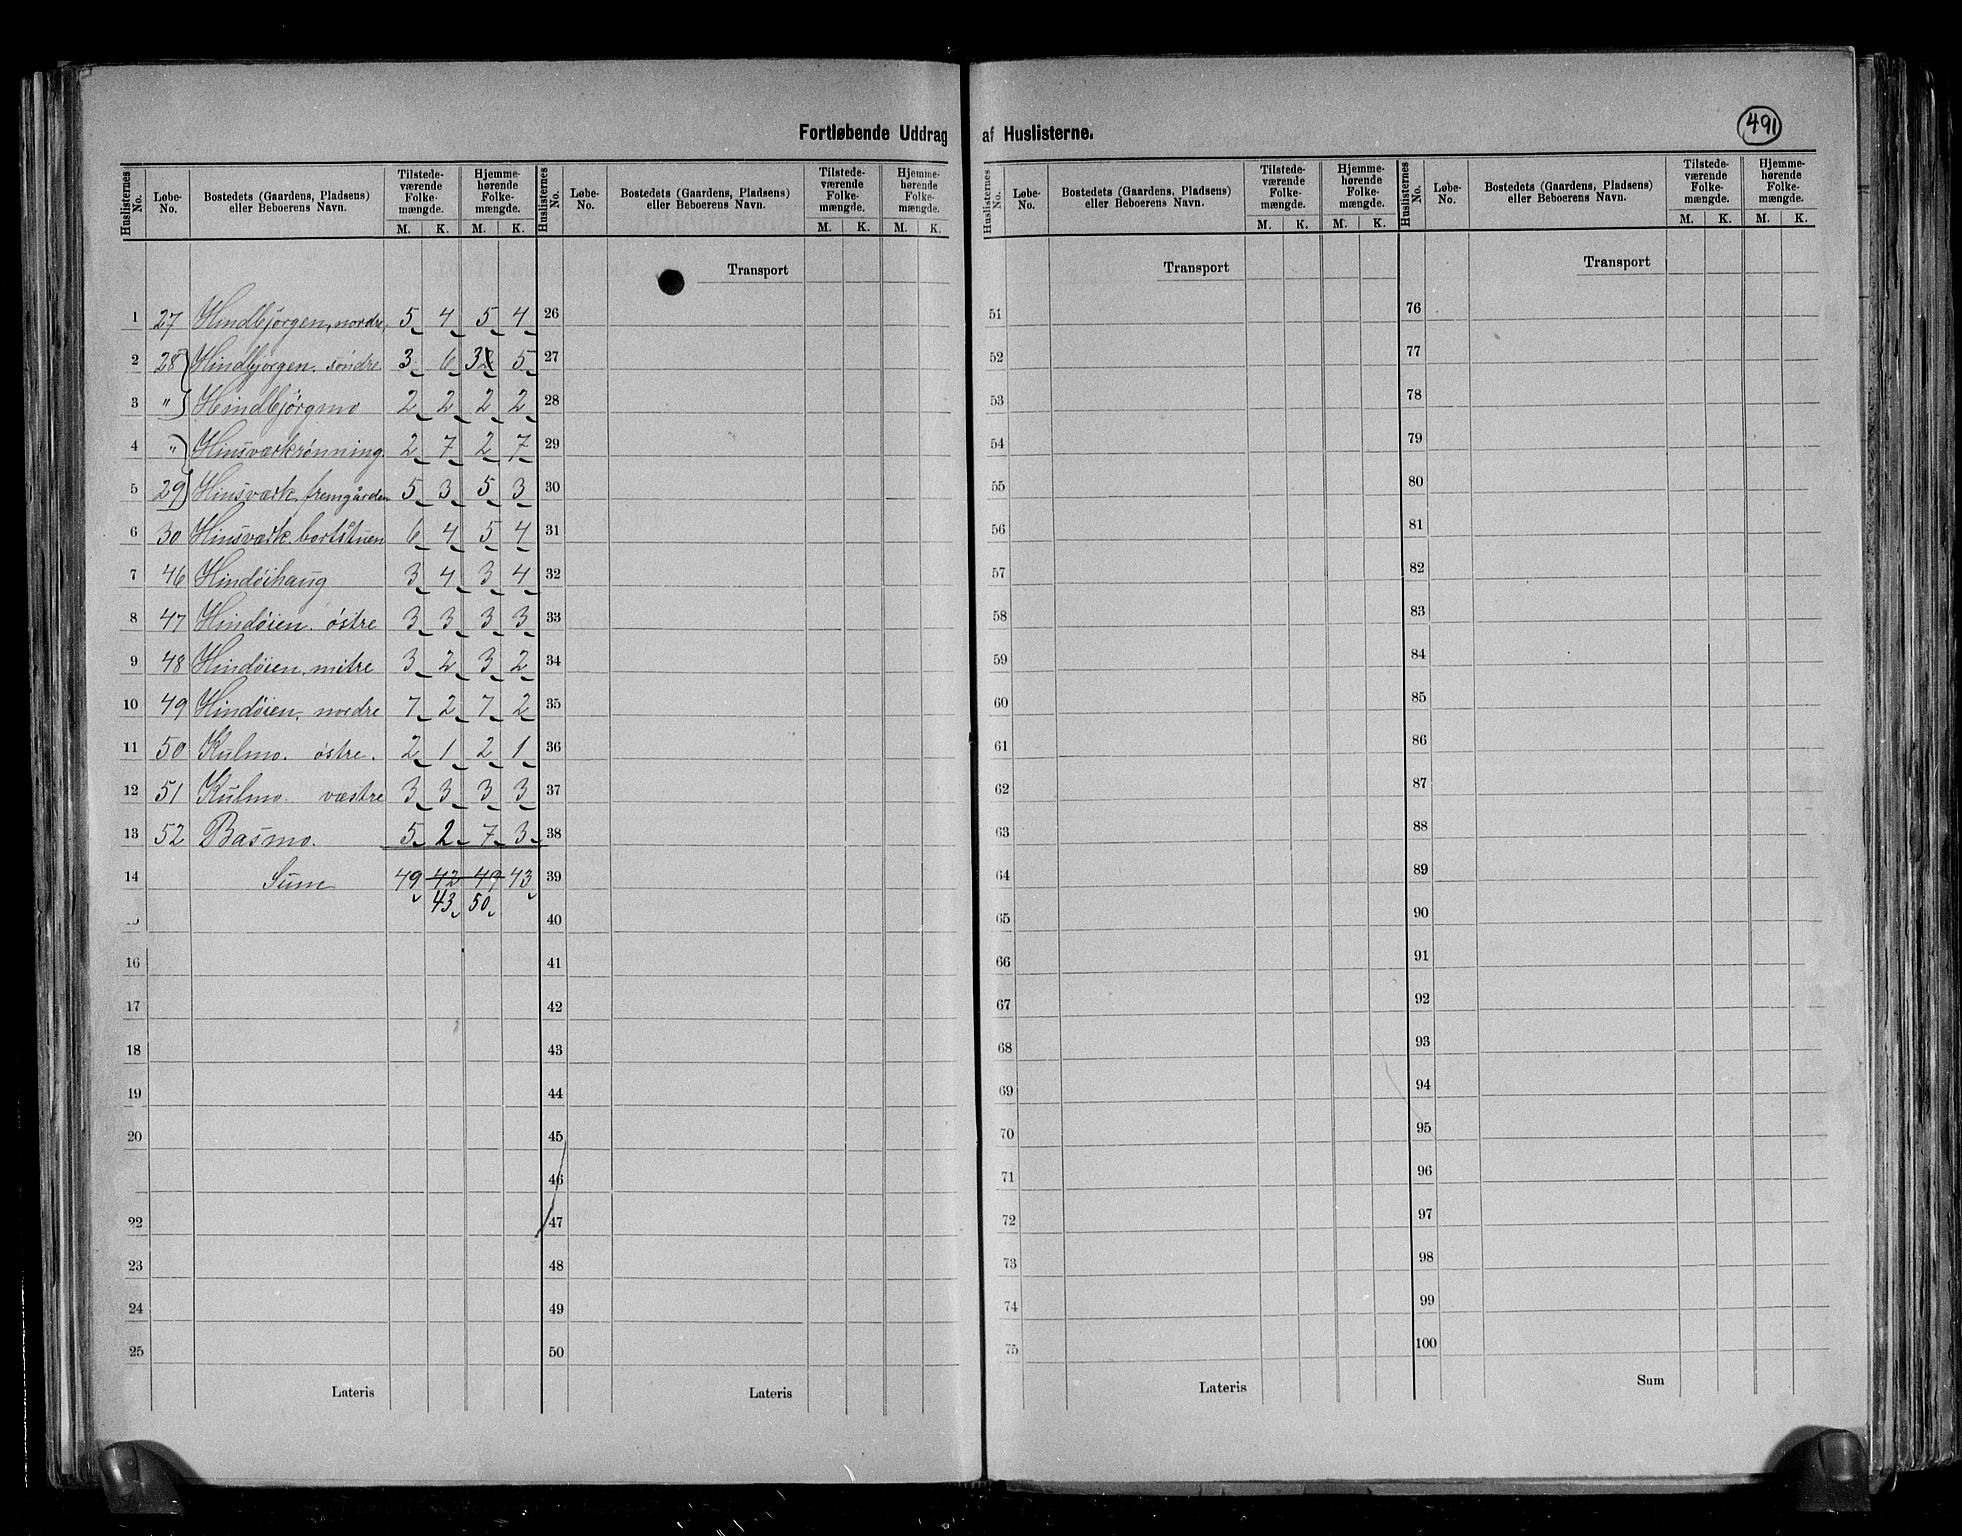 Fortløbende Uddrag af Huslisterne.
491
Huslisternes No. Løbe-No. Bostedets (Gaardens, Pladsens) eller Beboerens Navn. Tilstedeværende Folkemængde. M. K. Hjemmehørende Folkemængde. M. K.
Huslisternes No. Løbe-No. Bostedets (Gaardens, Pladsens) eller Beboerens Navn. Tilstedeværende Folkemængde. M. K. Hjemmehørende Folkemængde. M. K.
Huslisternes No. Løbe-No. Bostedets (Gaardens, Pladsens) eller Beboerens Navn. Tilstedeværende Folkemængde. M. K. Hjemmehørende Folkemængde. M. K.
Huslisternes No. Løbe-No. Bostedets (Gaardens, Pladsens) eller Beboerens Navn. Tilstedeværende Folkemængde. M. K. Hjemmehørende Folkemængde. M. K.
Transport Transport Transport
1 27 Hindbjørgen, nordre 5 4 5 4 26 51 76
2 28 Hindbjørgen. søndre 3 6 3 2 5 27 52 77
3 " Hindbjørgmo 2 2 2 2 28 53 78
4 " Hinsværkrønning. 2 7 2 7 29 54 79
5 29 Hinsværk, fremgården 5 3 5 3 30 55 80
6 30 Hinsværk. bortstuen 6 4 5 4 31 56 81
7 46 Hindøihaug 3 4 3 4 32 57 82
8 47 Hindøien. østre 3 3 3 3 33 58 83
9 48 Hindøien, mitre 3 2 3 2 34 59 84
10 49 Hindøien, nordre 7 2 7 2 35 60 85
11 50 Kulmo. østre. 2 1 2 1 36 61 86
12 51 Kulmo. væstre 3 3 3 3 37 62 87
13 52 Basmo. 5 2 7 3 38 63 88
14 Sum 49 42 49 43 39 64 89
43 50 40 65 90
16 41 66 91
17 42 67 92
18 43 68 93
19 44 69 94
20 45 70 95
46 71 96
22 47 72 97
23 48 73 98
24 49 74 99
25 50 75 100
Lateris Lateris Lateris Sum